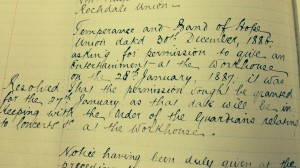 Rochdale Union.
Temperance and Band of Hope
Union dated 30th December, 1886,
asking for permission to give an
Entertainment at the Workhouse
on the 28th January, 1887, it was
Resolved that the permission sought be granted
for the 27th January as that date will be in
keeping with the Order of the Guardians relating
to Concerts &c at the Workhouse.
Notice having been duly given at the